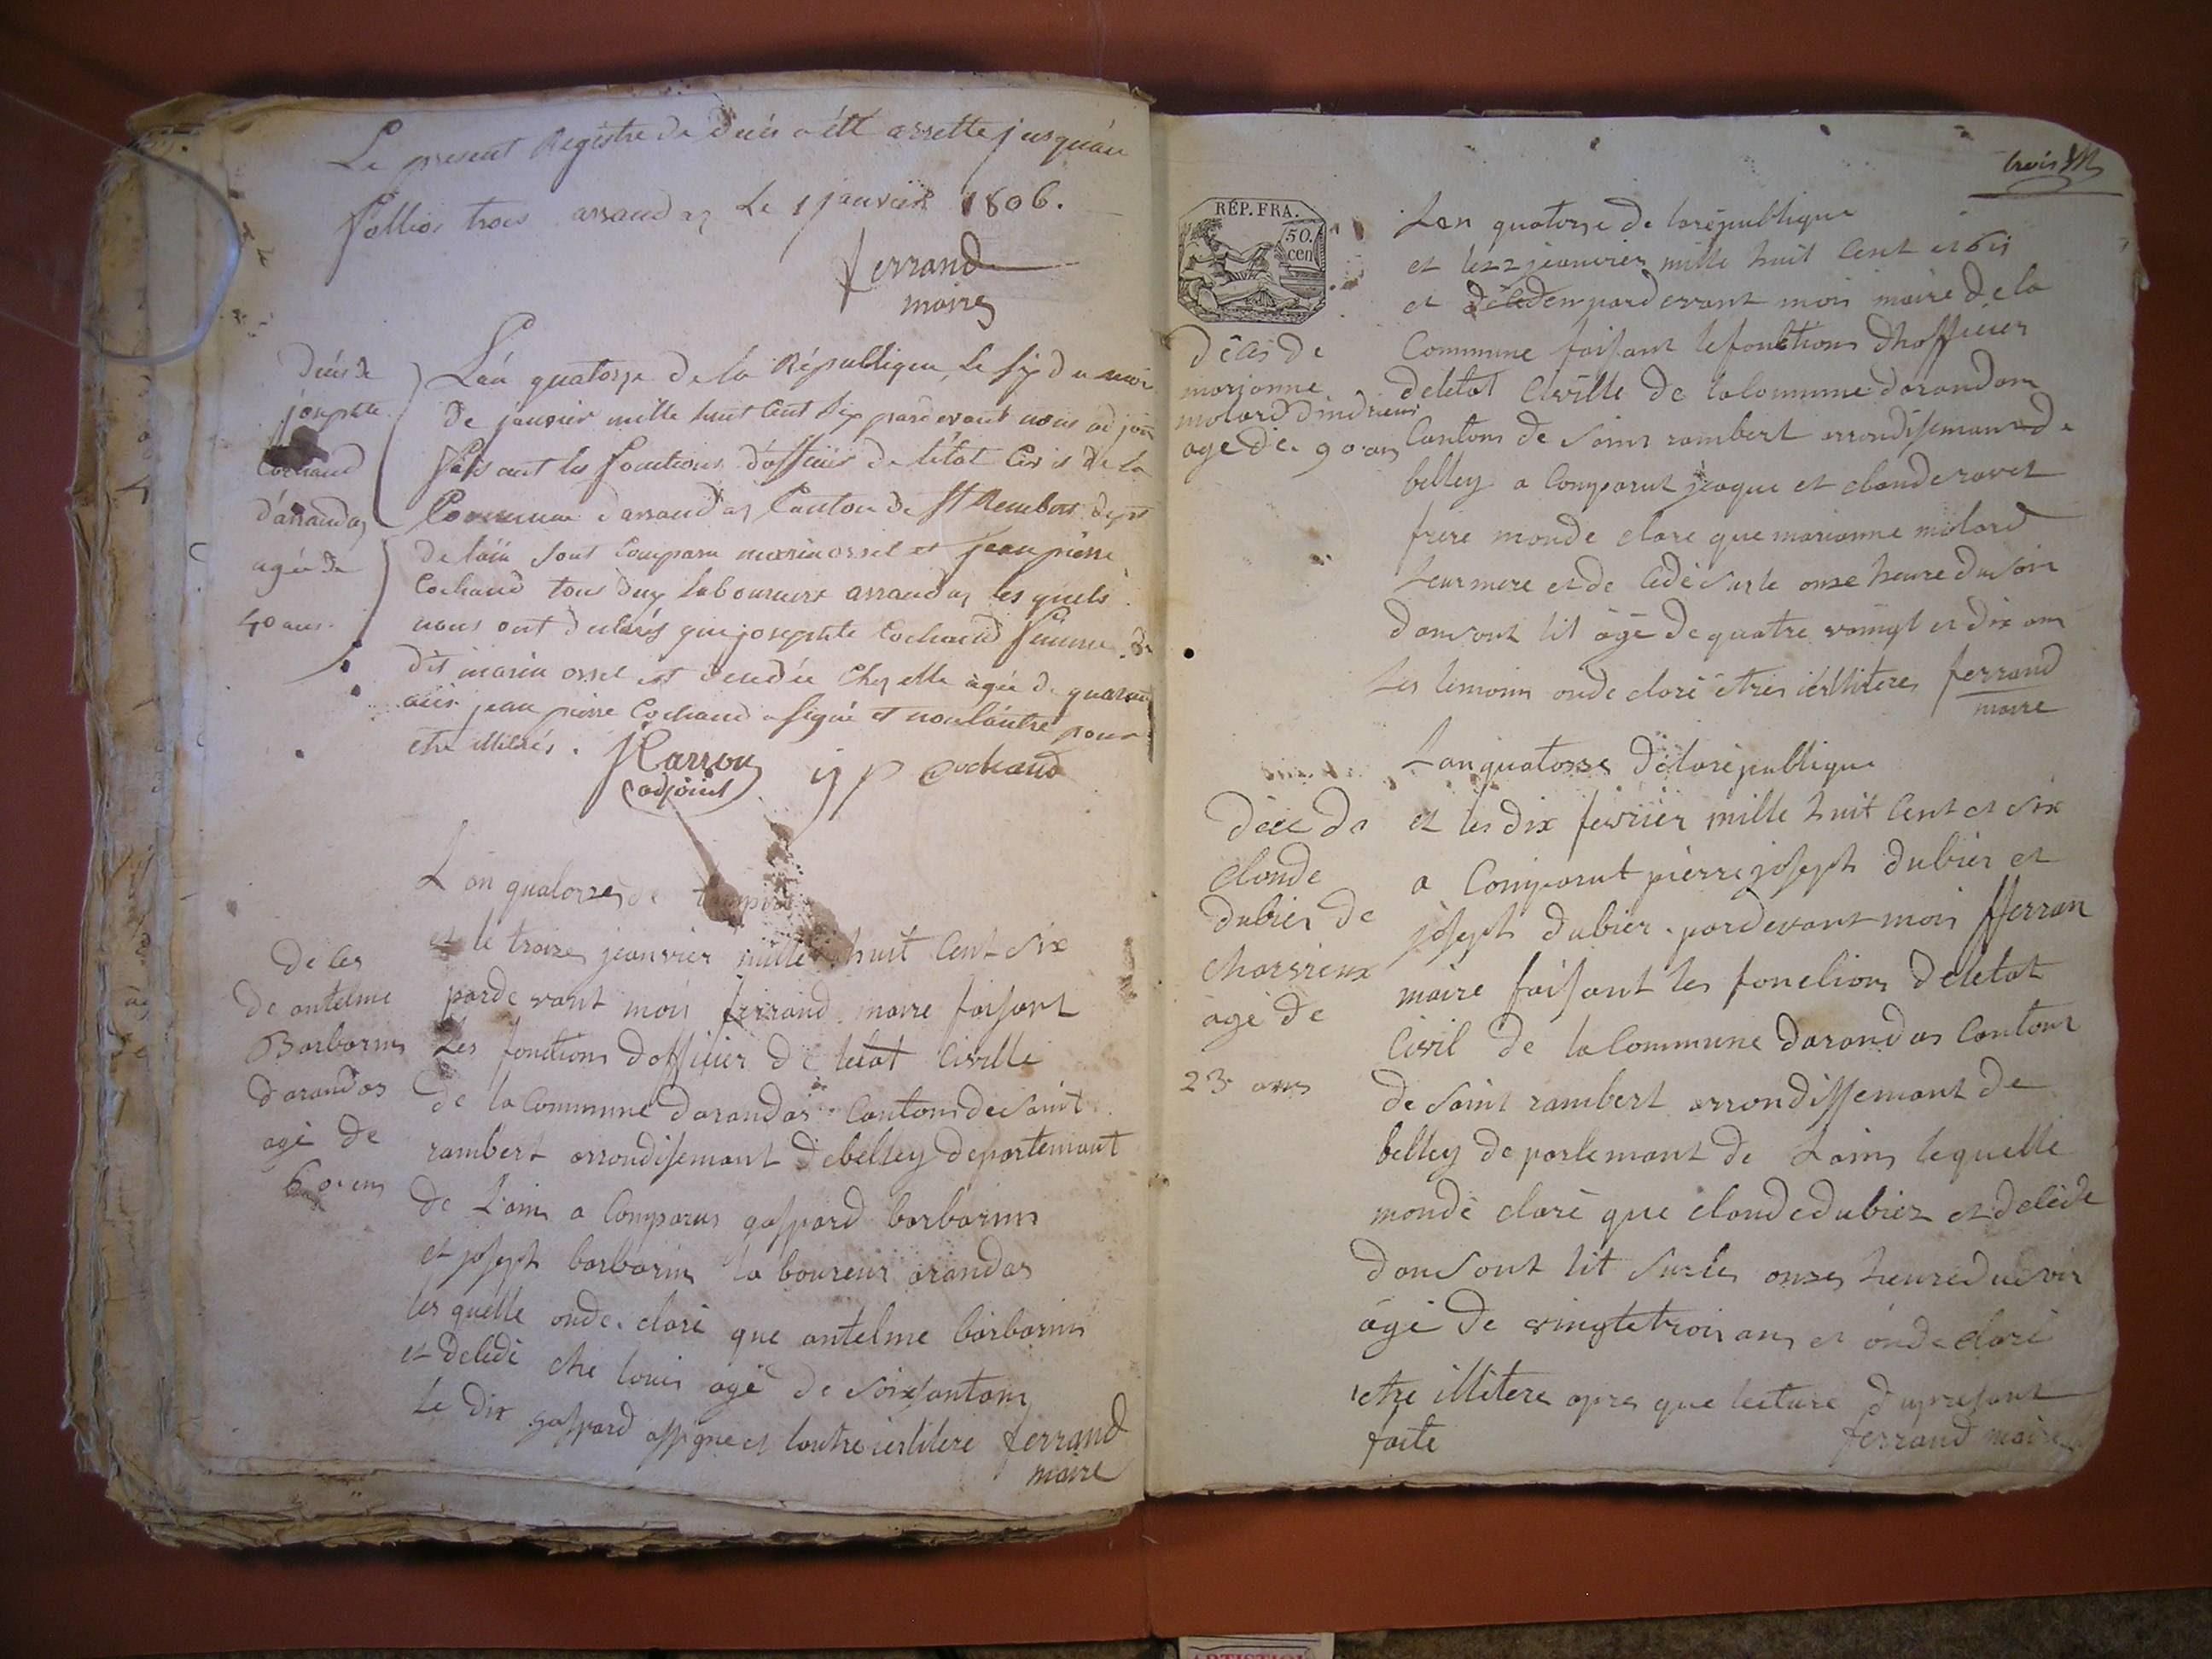 Le present Registre de deces a été arrette jusqu'au
follios trois arrandas Le 1 janvier 1806.
ferrand
maire
decés de
josephte
Cochand
d'arrandas
agée de
40 ans.
L'an quatorze de la République, le six du mois
de janvier mille huit cent six pardevant nous adjoin
faisant les fonctions d'officier de l'état civil de la
Commune d'arrandas Canton de St Rembert dept
de l'ain sont comparu marin ossel et jean pierre
Cochand tous deux laboureurs arrandas les quels
nous ont declarés que josephte Cochand femme du
dit marin ossel est decedée chez elle agée de quarante
ans jean pierre Cochand a signé et non l'autre pour
etre illitérés.
adjoint
j p cochand
L an quatorzes de
et le traizes jeanvier mille huit Cent six
parde vant moii ferrand maire faisant
Les fonctions dofficier de letat civille
de la Commune darandas Cantons de saint
rambert arrondisemant de belley departemant
de Lains a Comparus gaspard barbarins
et joseph barbarins la boureur arandas
les quelle onde clare que antelme barbarins
et decedé che louis agé de soixsantans
Le dix gaspard assigne et lautre ierlitere ferrand
maire
de ces
de antelme
Barbarins
darandas
agé de
60 ans
trois
RÉP. FRA.
50.
cen
Lan quatorse de larépublique
et les 22 jeanvier mille huit Cent et 6is
et pardevant mois maire de la
Commune faisant le fonctions dhofficier
deletat Civille de lacommune darandas
Cantons de saint rambert arrondisemans de
belley a Comparut jaque et claude ravet
frere monde clare que marianne molard
Leur mere et de cedé sur le onse heure du soir
dansont lit agé de quatre vaingt et dix ans
Les temoins onde claré etres ierlliteres ferrand
maire
décés de
marianne
molard dindrieux
age de 90 ans
Lan quatorses delarépublique
et les dix fevrier mille huit Cent et six
a Comparut pierre joseph dubier et
joseph dubier pardevant moii fferran
maire faisant les fonctions deletat
Civil de la Commune darandas Cantons
de saint rambert arrondissemant de
belley de partemant de Lains lequelle
mondé claré que claude dubier et decéde
dansont lit surles onses heure du soir
agé de vingtetrois ans et onde claré
etre illitere apres que lecture du presant
faite ferrand maire
décé de
claude
dubier de
charvieux
agé de
23 ans